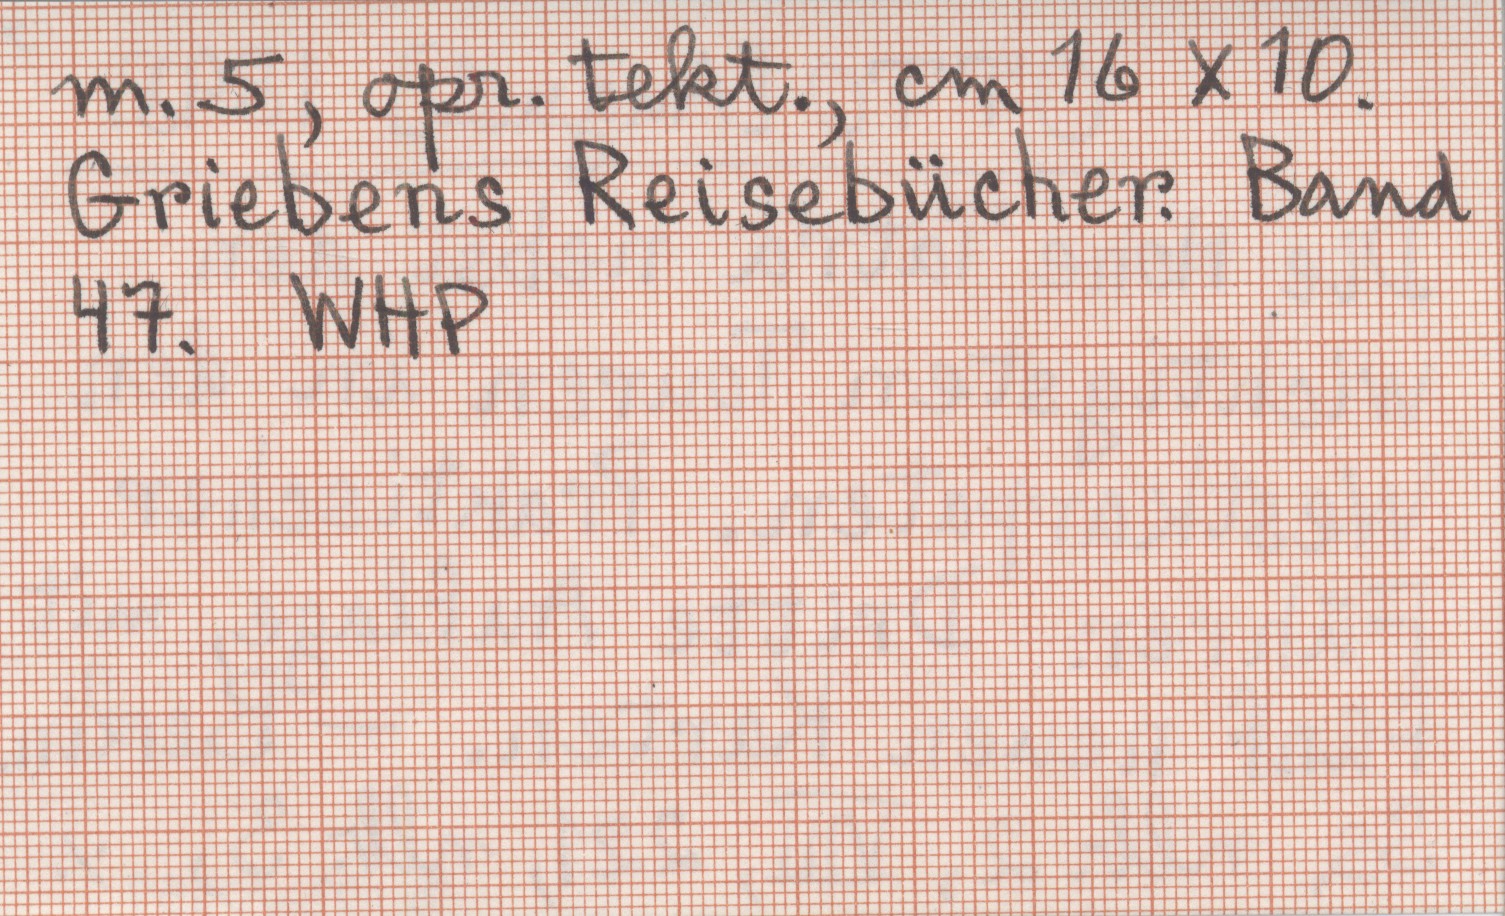 m. 5, opr. tekt., cm 16 x 10.
Griebens Reisebücher. Band
47. WHP